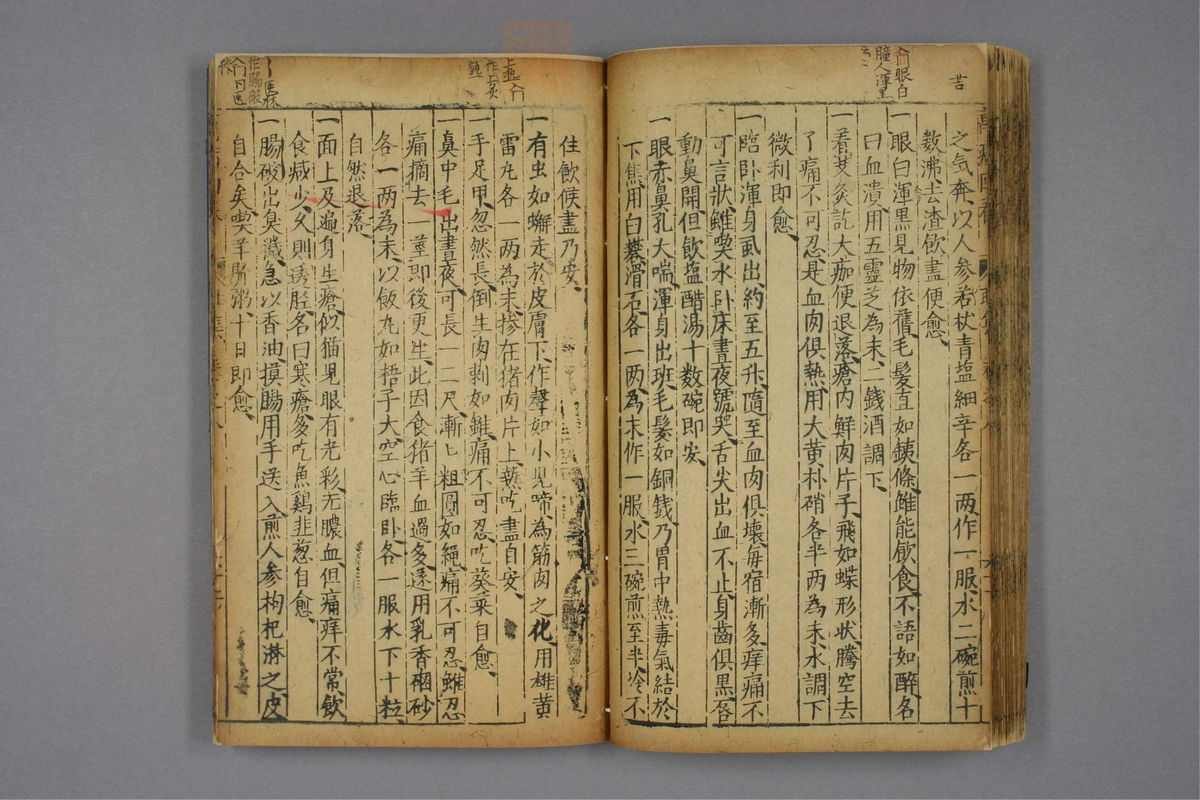 之氣奔以人參若杖青塩細辛各一两作一服水二碗煎十
数沸去渣飲盡便愈
一眼白渾黒見物依舊毛髮直如銕條雖能飲食不語如醉名
曰血潰用五靈芝為末二銭酒調下
一着艾灸訖大痂便退落瘡内鮮肉片子飛如蝶形状騰空去
了痛不可忍是血肉倶熱用大黄朴硝各半两為末水調下
微利即愈
一臨卧渾身虱出約至五升隨至血肉倶壊毎宿漸多痒痛不
可言状雖喫水卧床晝夜號哭舌尖出血不止身齒倶黒唇
動鼻開但飲塩醋湯十数碗即安
一眼赤鼻孔大喘渾身出斑毛髮如銅銭乃胃中熱毒氣結於
下焦用白礬滑石各一两為末作一服水三碗煎至半冷不
住飲候盡乃安
一有虫如蠏走於皮膚下作聲如小児啼為筋肉之化用雄黄
雷丸各一两為末摻在猪肉片上熱吃盡自安
一手足甲忽然長倒生肉刺如錐痛不可忍吃葵菜自愈
一鼻中毛出晝夜可長一二尺漸〻粗圓如䋲痛不可忍雖忍
痛摘去一莖即後更生此因食猪羊血過多遂用乳香硇砂
各一两為末以飯丸如梧子大空心臨卧各一服水下十粒
自然退落
一面上及遍身生瘡似猫児眼有光彩无膿血但痛痒不常飲
食减少久則透脛名曰寒瘡多吃魚鷄韭葱自愈
一腸破出臭穢急以香油摸腸用手送入煎人參枸杞淋之皮
自合矣喫羊腎粥十日即愈
苦
肏眼白
瞳人渾黒
上熱
作上炙
熟